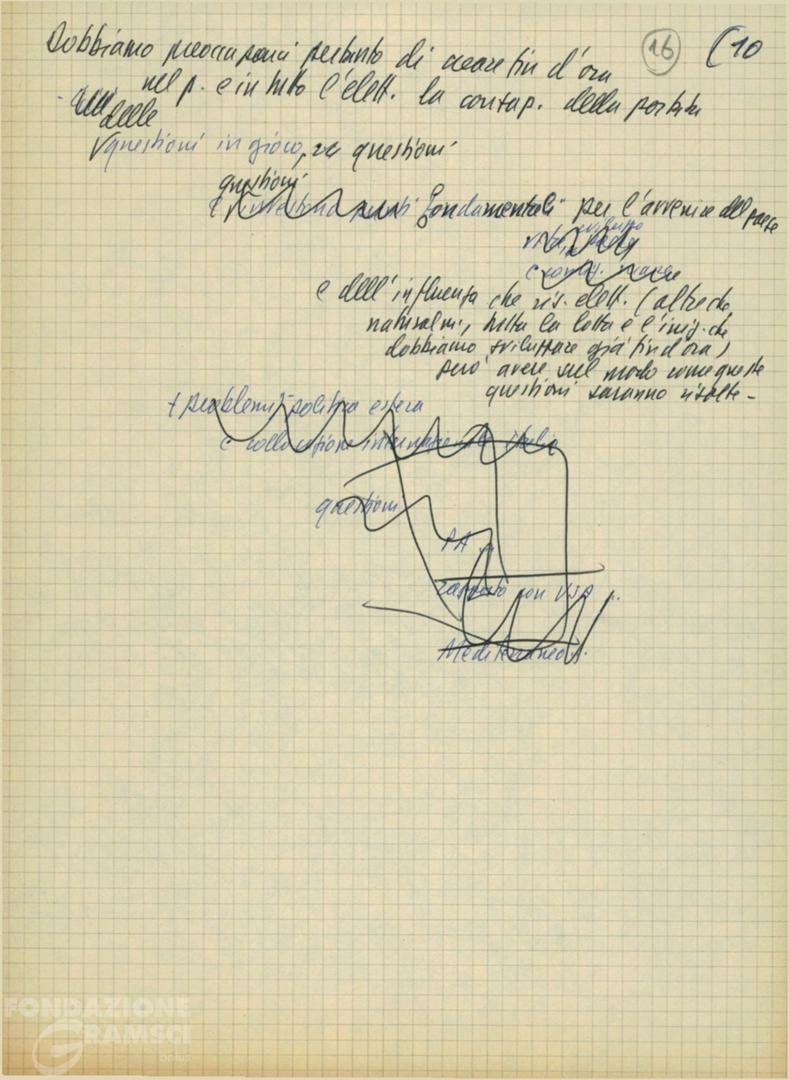 16 (10
Dobbiamo preoccuparci pertanto di creare fin d'ora
nel p. e in tutto l'elett. la consap. della portata
delle
questioni in gioco, questioni
questioni
fondamentali per l'avvenire del paese
e dell'influenza che ris. elett. (oltre che
naturalm., tutta la lotta e l'iniz. che
dobbiamo sviluppare già fin d'ora)
può avere sul modo come queste
questioni saranno risolte -
+ problemi politica estera
e collocazione internazionale Italia
questioni
PA ..
rapporto con USA ..
Mediterraneo ..
FONDAZIONE
GRAMSCI